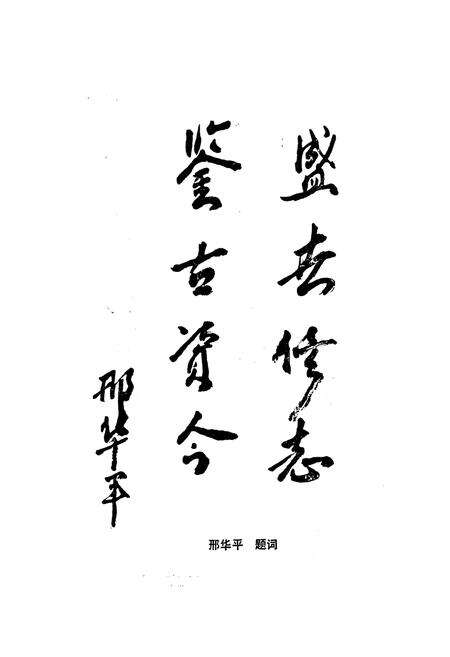 盛世修志
鉴古资今
邢华平
邢华平 题词